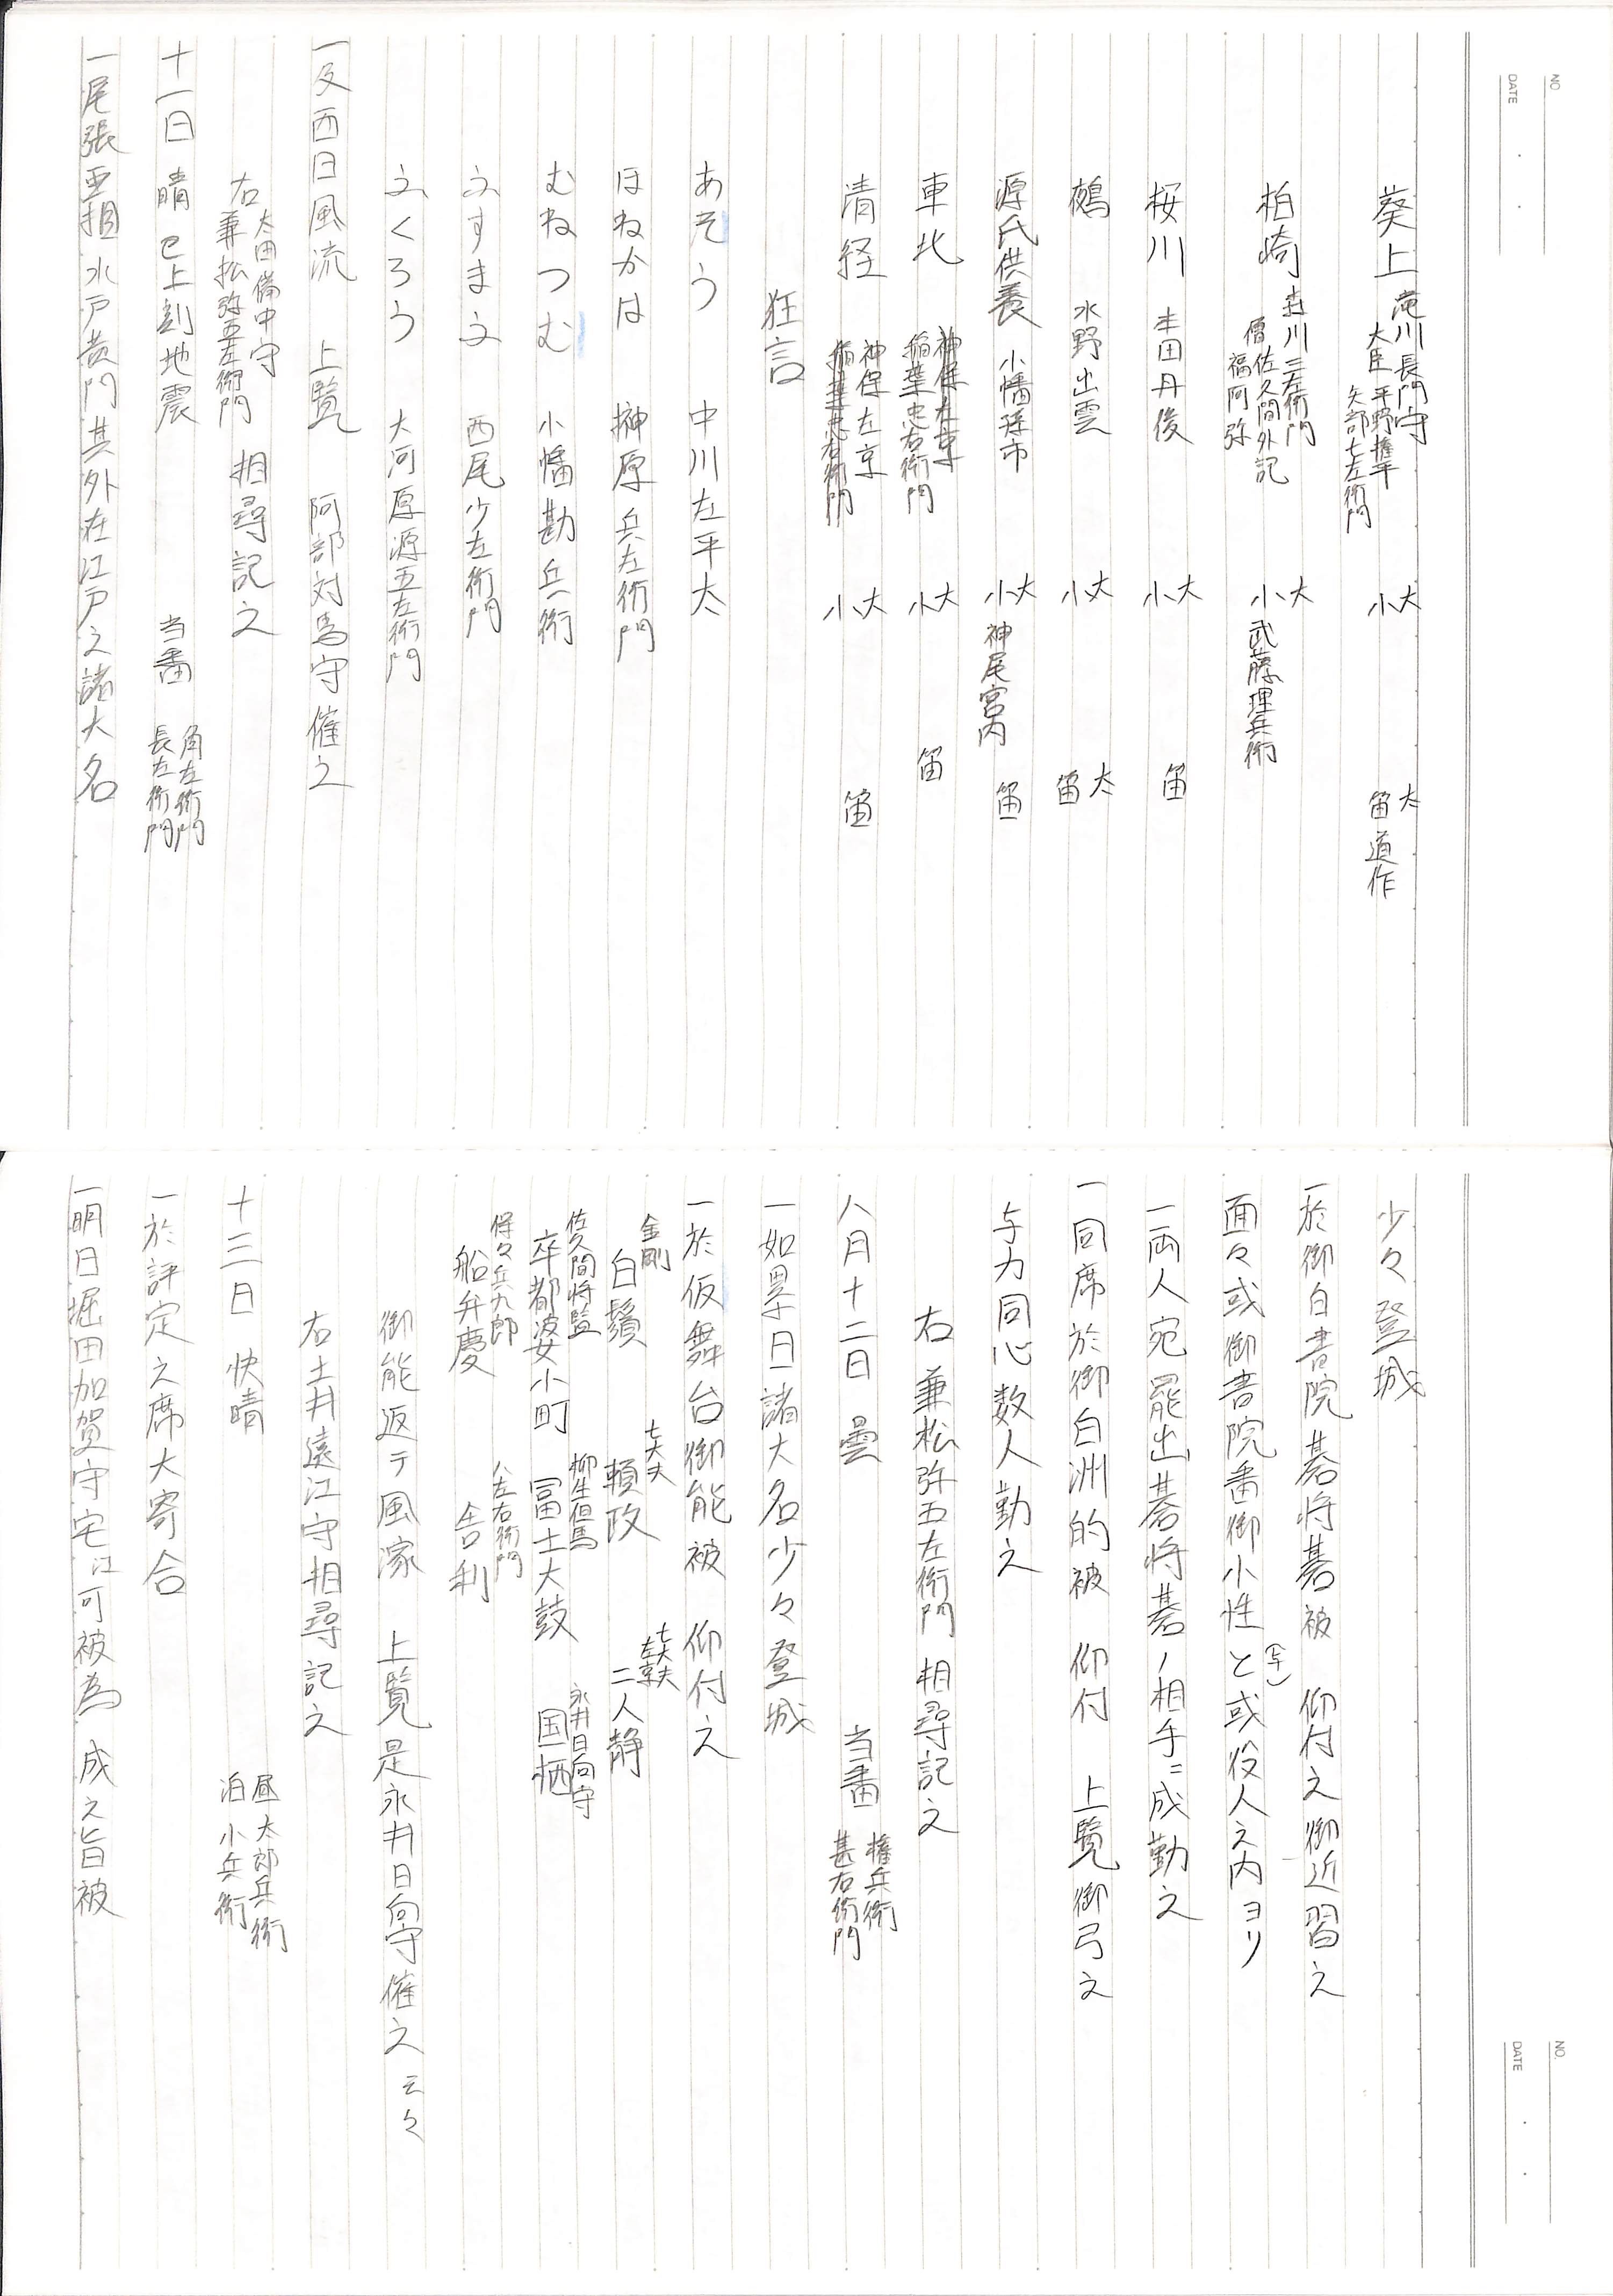 NO
DATE
葵上 滝川長門守
大臣 平野権平
矢部七左衛門
大
小
太
笛 道作
柏崎 森川三左衛門
僧 佐久間外記
福阿弥
大
小 武藤理兵衛
桜川 本田丹後 大
小 笛
鵺 水野出雲 大
小 太
笛
源氏供養 小幡孫市 大
小 神尾宮内 笛
車北 神保左京
稲葉忠右衛門 大
小 笛
清経 神保左京
稲葉忠右衛門 大
小 笛
狂言
あそう 中川左平太
ほねかは 榊原兵左衛門
むねつむ 小幡勘兵衛
ふすまふ 西尾少左衛門
ふくろう 大河原源五左衛門
一及西日風流 上覧 阿部対馬守催之
右 太田備中守
兼松弥五左衛門 相尋記之
十一日 晴 巳上刻地震 当番 角左衛門
長左衛門
一尾張亜相水戸黄門其外在江戸之諸大名
NO.
DATE
少々登城
一於御白書院碁将碁被 仰付之御近習之
面々或御書院番御小性と或役人之内ヨリ
一両人宛罷出碁将碁ノ相手ニ成勤之
一同席於御白洲的被 仰付 上覧御弓之
与力同心数人勤之
右兼松弥五左衛門 相尋記之
八月十二日 曇 当番 権兵衛
甚右衛門
一如累日諸大名少々登城
一於仮舞台御能被 仰付之
金剛
白鬚 七大夫
頼政 二人静
佐久間将監
卒都婆小町 柳生但馬
冨士大鼓 永井日向守
国栖
保々兵九郎
船弁慶 八左右衛門
舎利
御能返テ風流 上覧是永井日向守催之云々
右土井遠江守相尋記之
十三日 快晴 昼 太郎兵衛
泊 小兵衛
一於評定之席大寄合
一明日堀田加賀守宅江可被為 成之旨被